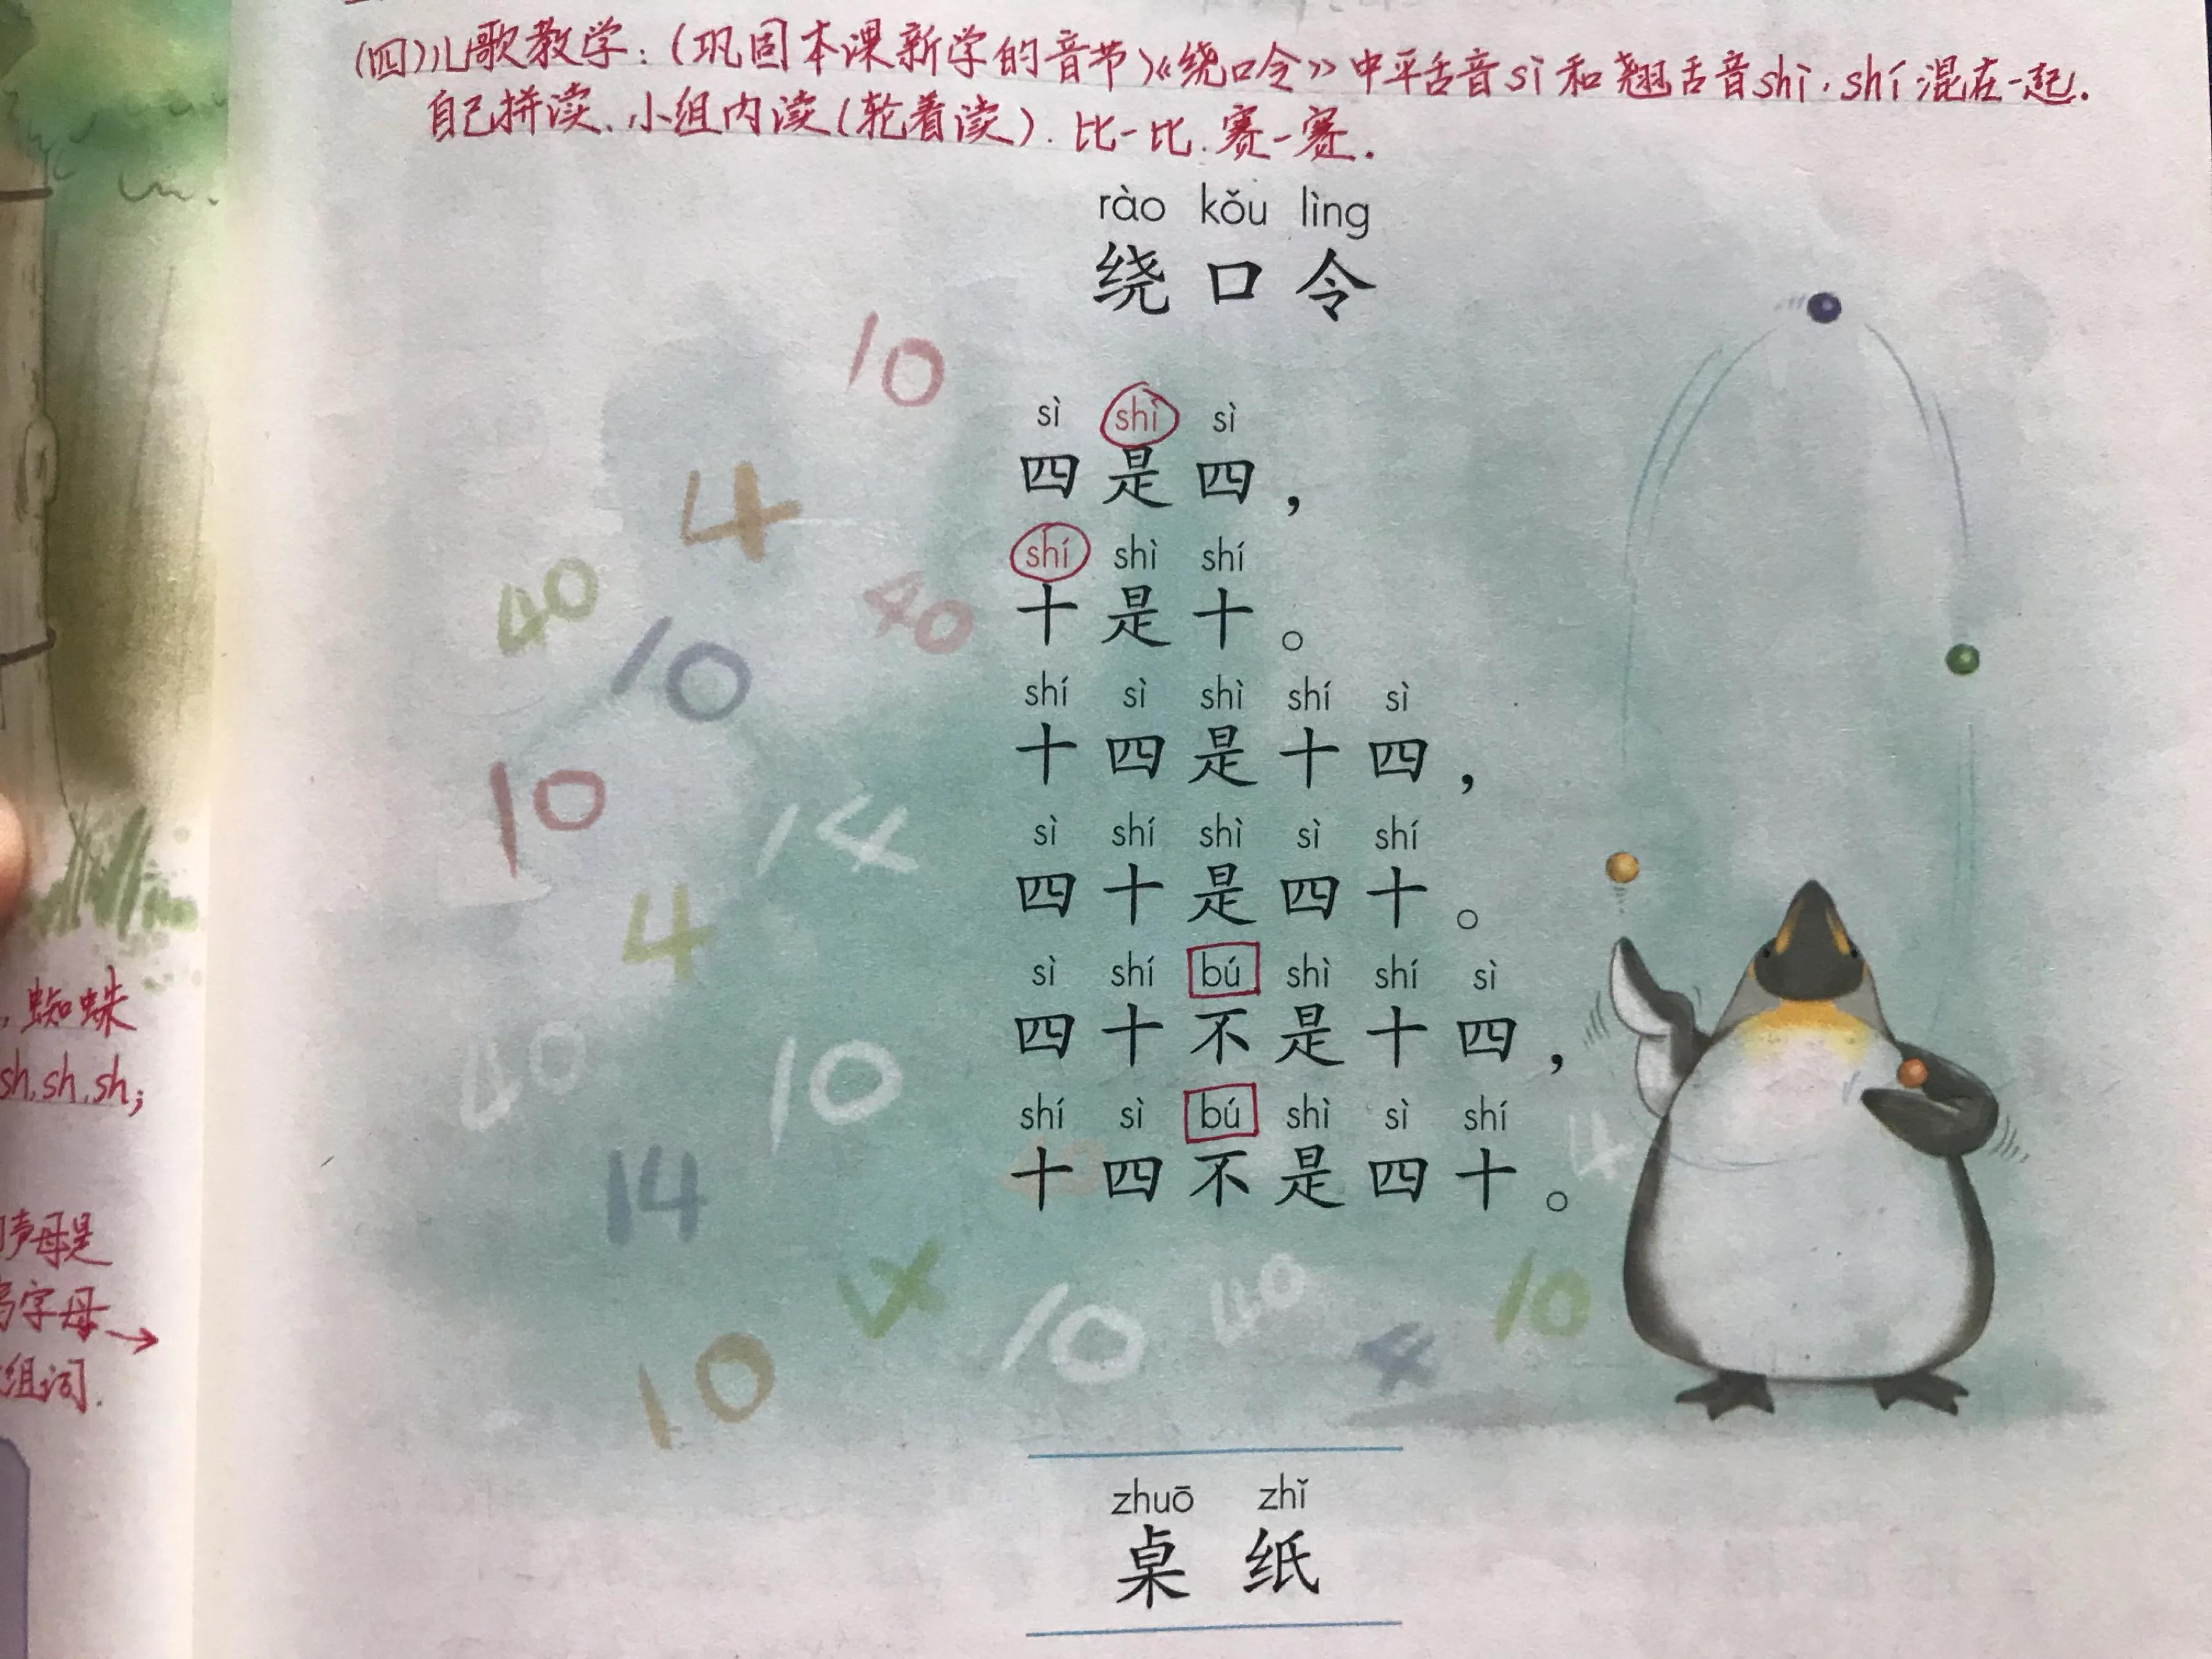 (四)儿歌教学:(巩固本课新学的音节)《绕口令》中平舌音sì和翘舌音shì,shí混在一起.
自己拼读.小组内读(轮着读).比一比.赛一赛.
rào kǒu lìng
绕口令
sì shì sì
四是四,
shí shì shí
十是十。
shí sì shì shí sì
十四是十四,
sì shí shì sì shí
四十是四十。
sì shí bú shì shí sì
四十不是十四,
shí sì bú shì sì shí
十四不是四十。
zhuō zhǐ
桌 纸
10
4
40
40
10
10
14
4
40
10
14
4
10
40
4
10
10
蜘蛛
sh.sh.sh;
声母是
字母→
组词.